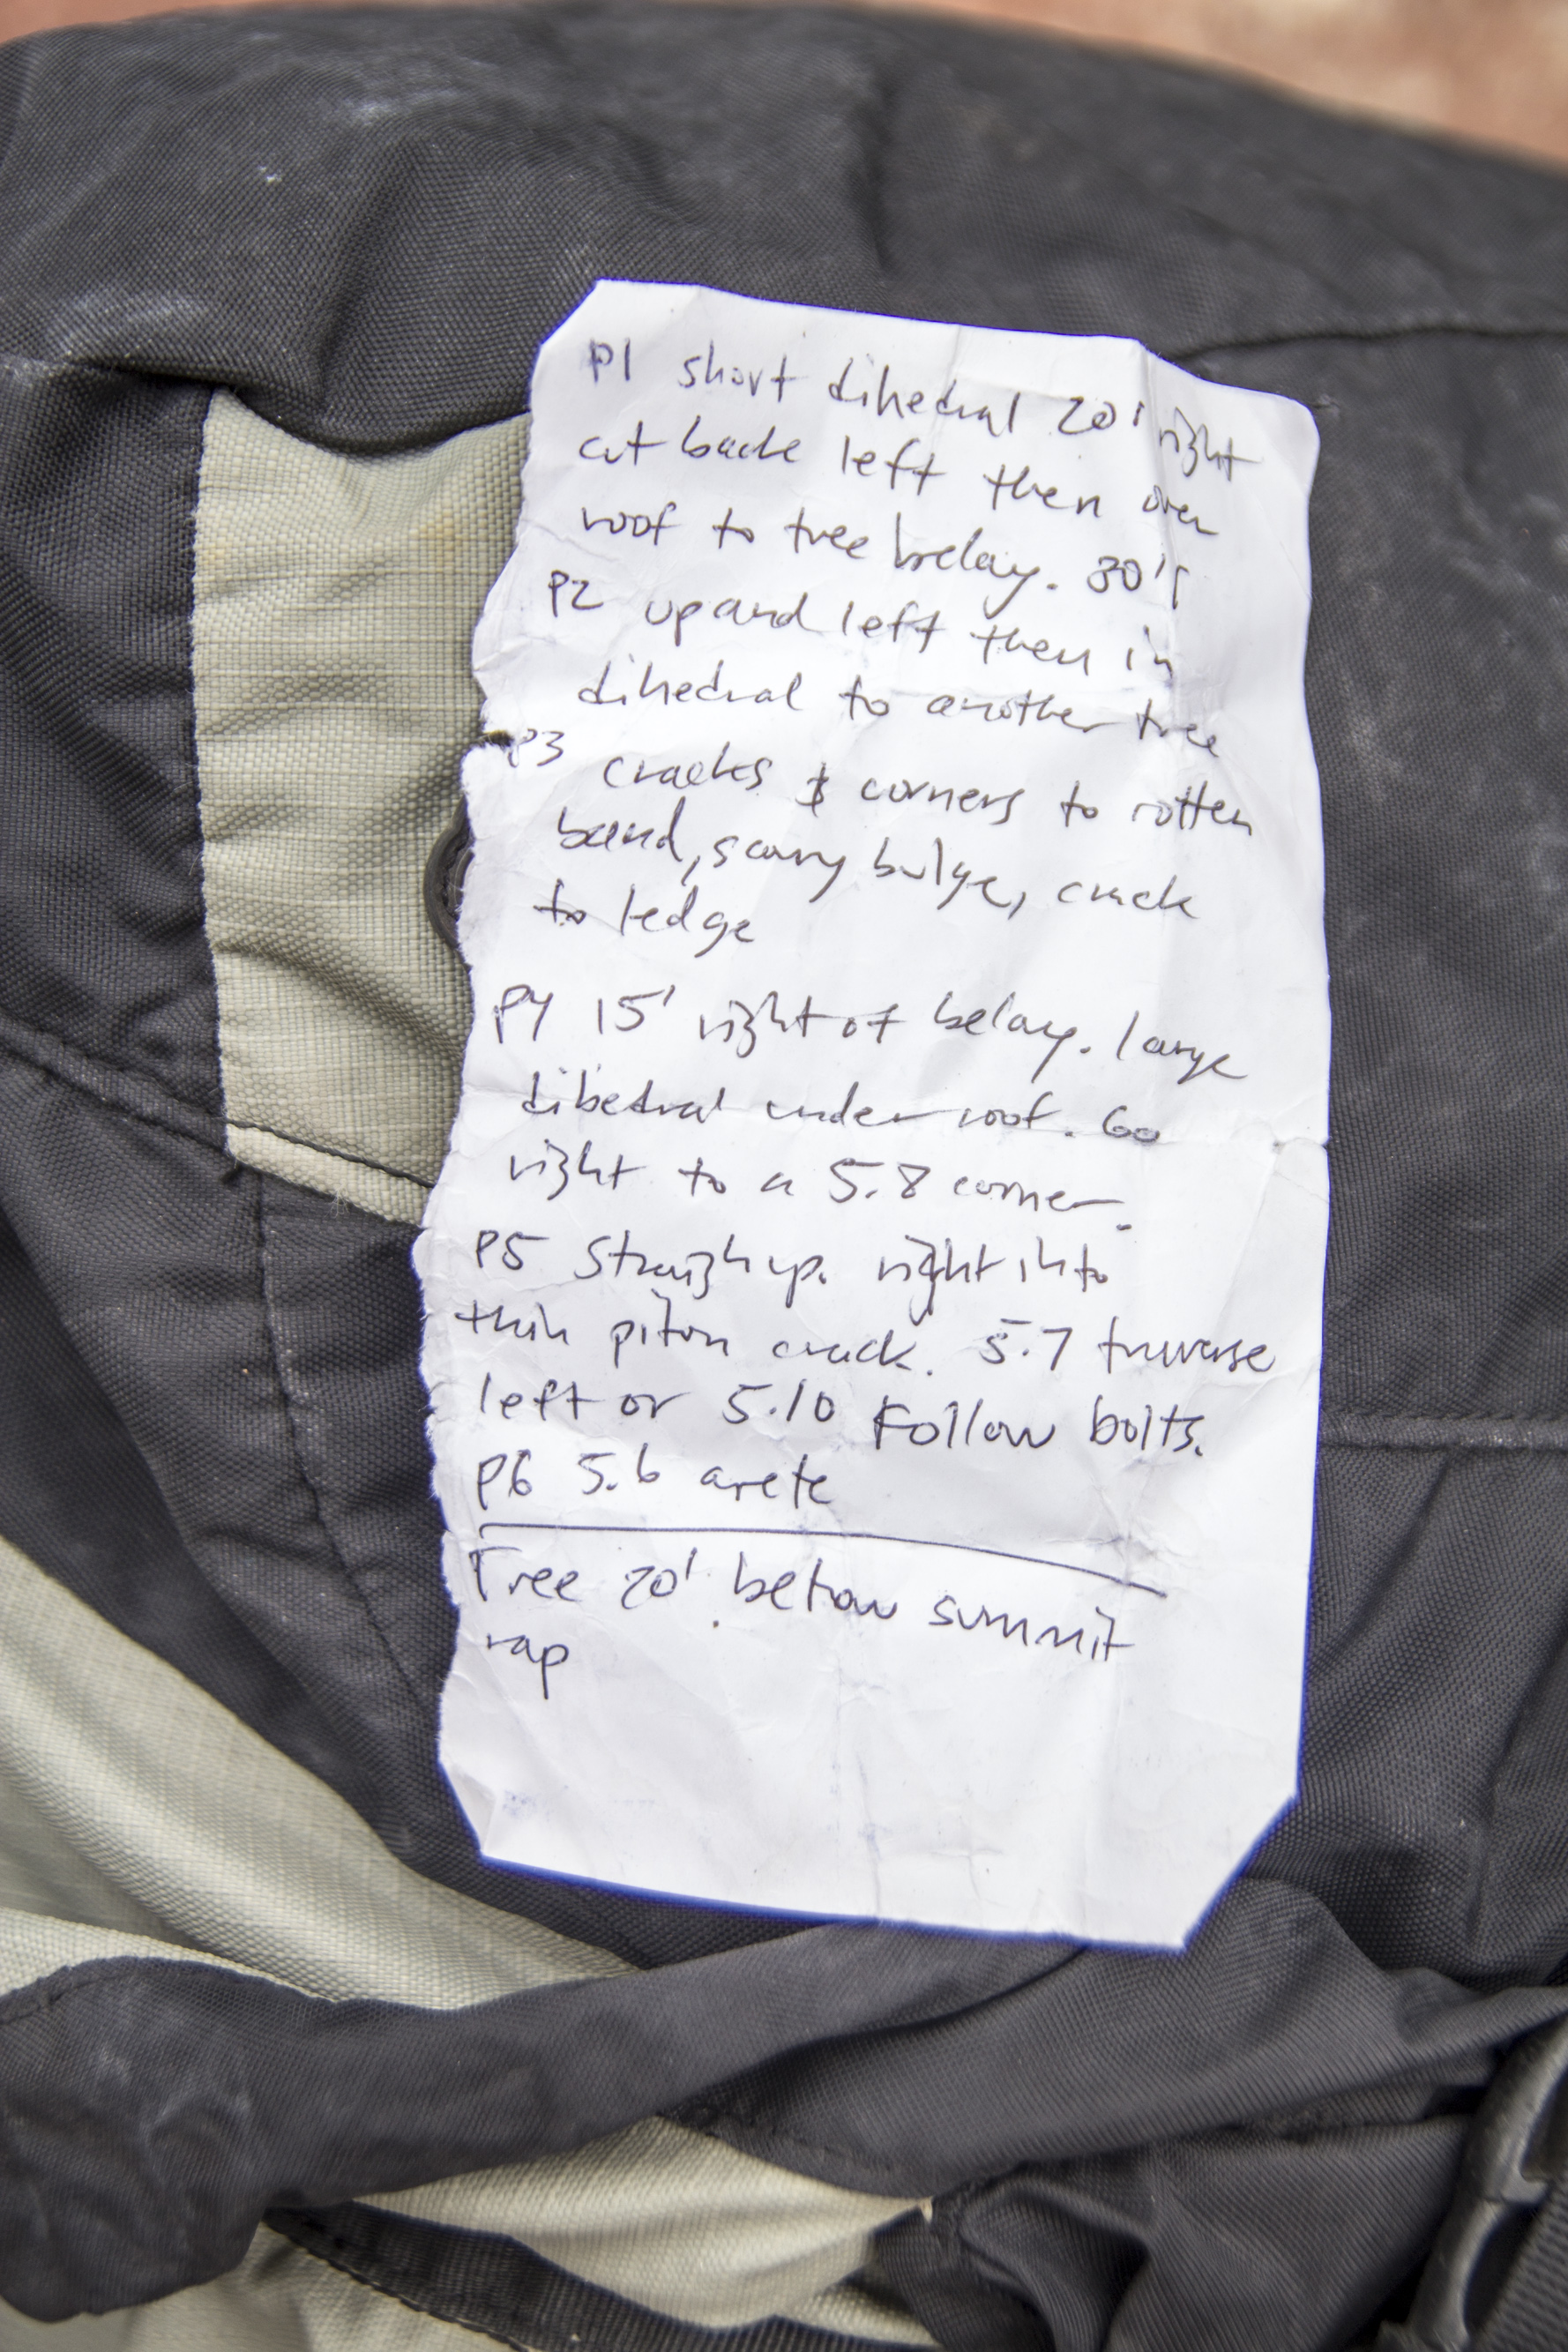 P1 short dihedral 20' right
cut back left then over
roof to tree belay. 30'
P2 up and left then in
dihedral to another tree
P3 cracks & corners to rotten
band, scary bulge, crack
to ledge
P4 15' right of belay. large
dihedral under roof. Go
right to a 5.8 corner.
P5 Straigh up. right into
thin piton crack. 5.7 traverse
left or 5.10 Follow bolts.
P6 5.6 arete
Tree 20' below summit
rap